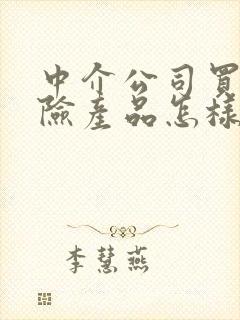 中介公司買
險產品怎樣
李慧燕